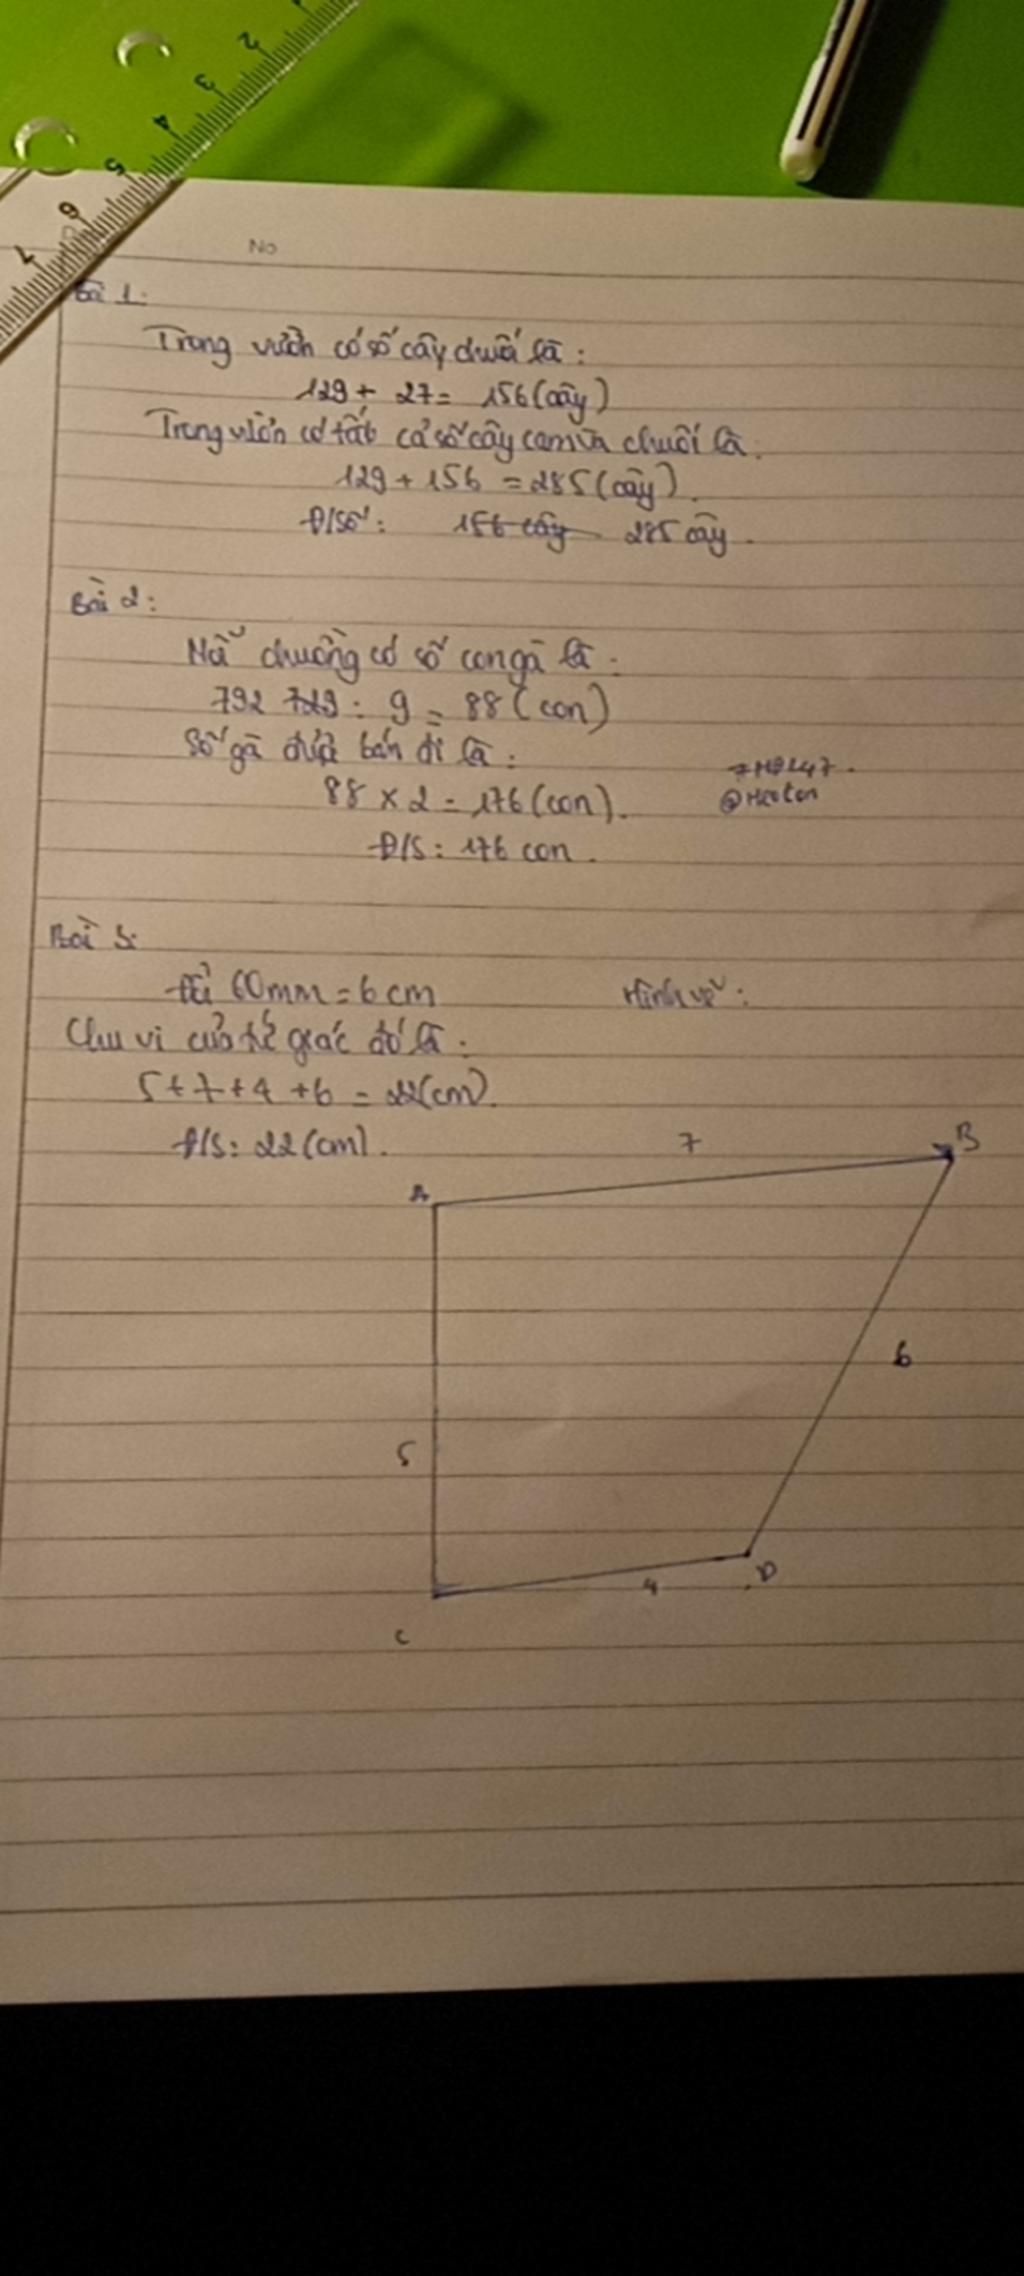 2
3
4
5
6
7
No
Bài 1:
Trong vườn có số cây chuối là:
129 + 27 = 156 (cây)
Trong vườn có tất cả số cây cam và chuối là:
129 + 156 = 285 (cây).
Đ/Số: 156 cây 285 cây.
Bài 2:
Mỗi chuồng có số con gà là:
792 729 : 9 = 88 (con)
Số gà được bán đi là:
88 × 2 = 176 (con).
Đ/S: 176 con.
@Meoten
Bài 3:
Đổi 60mm = 6 cm
Hình vẽ:
Chu vi của tứ giác đó là:
5 + 7 + 4 + 6 = 22 (cm).
Đ/S: 22 (cm).
7
B
A
6
5
4
D
C